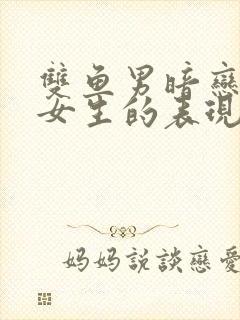 雙魚男暗戀
女生的表現
妈妈説談戀愛